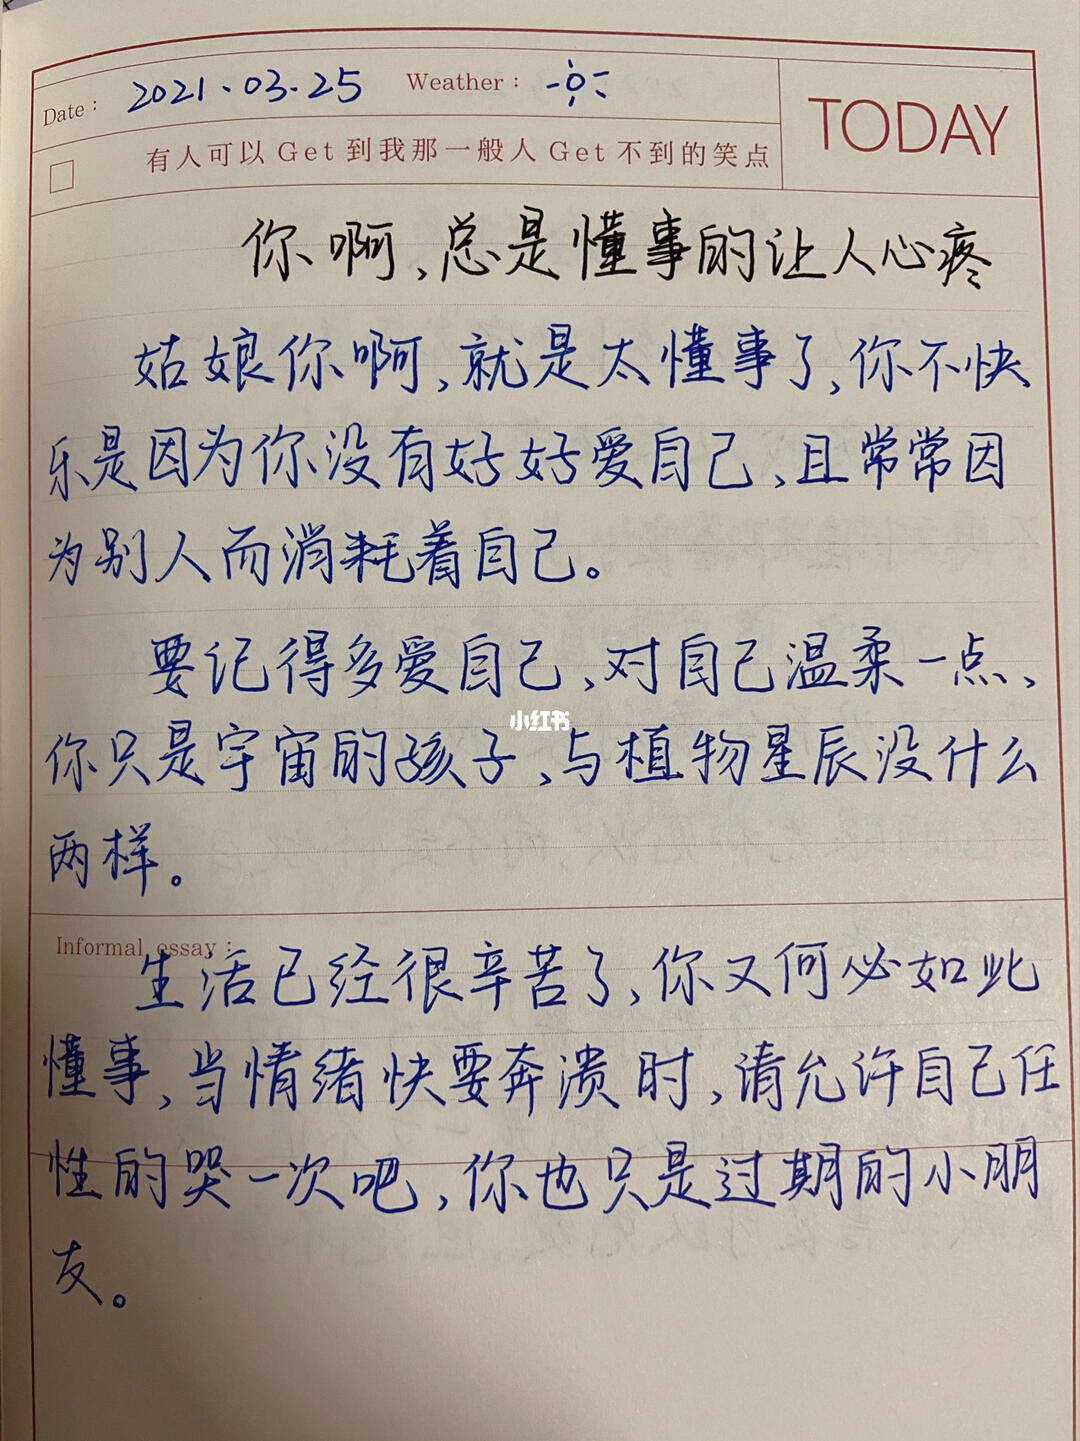 Date： 2021.03.25 Weather：
TODAY
有人可以 Get 到我那一般人 Get 不到的笑点
你啊,总是懂事的让人心疼
姑娘你啊,就是太懂事了,你不快
乐是因为你没有好好爱自己、且常常因
为别人而消耗着自己。
要记得多爱自己、对自己温柔一点、
小红书
你只是宇宙的孩子、与植物星辰没什么
两样。
Informal essay：
生活已经很辛苦了,你又何必如此
懂事,当情绪快要奔溃时,请允许自己任
性的哭一次吧,你也只是过期的小朋
友。